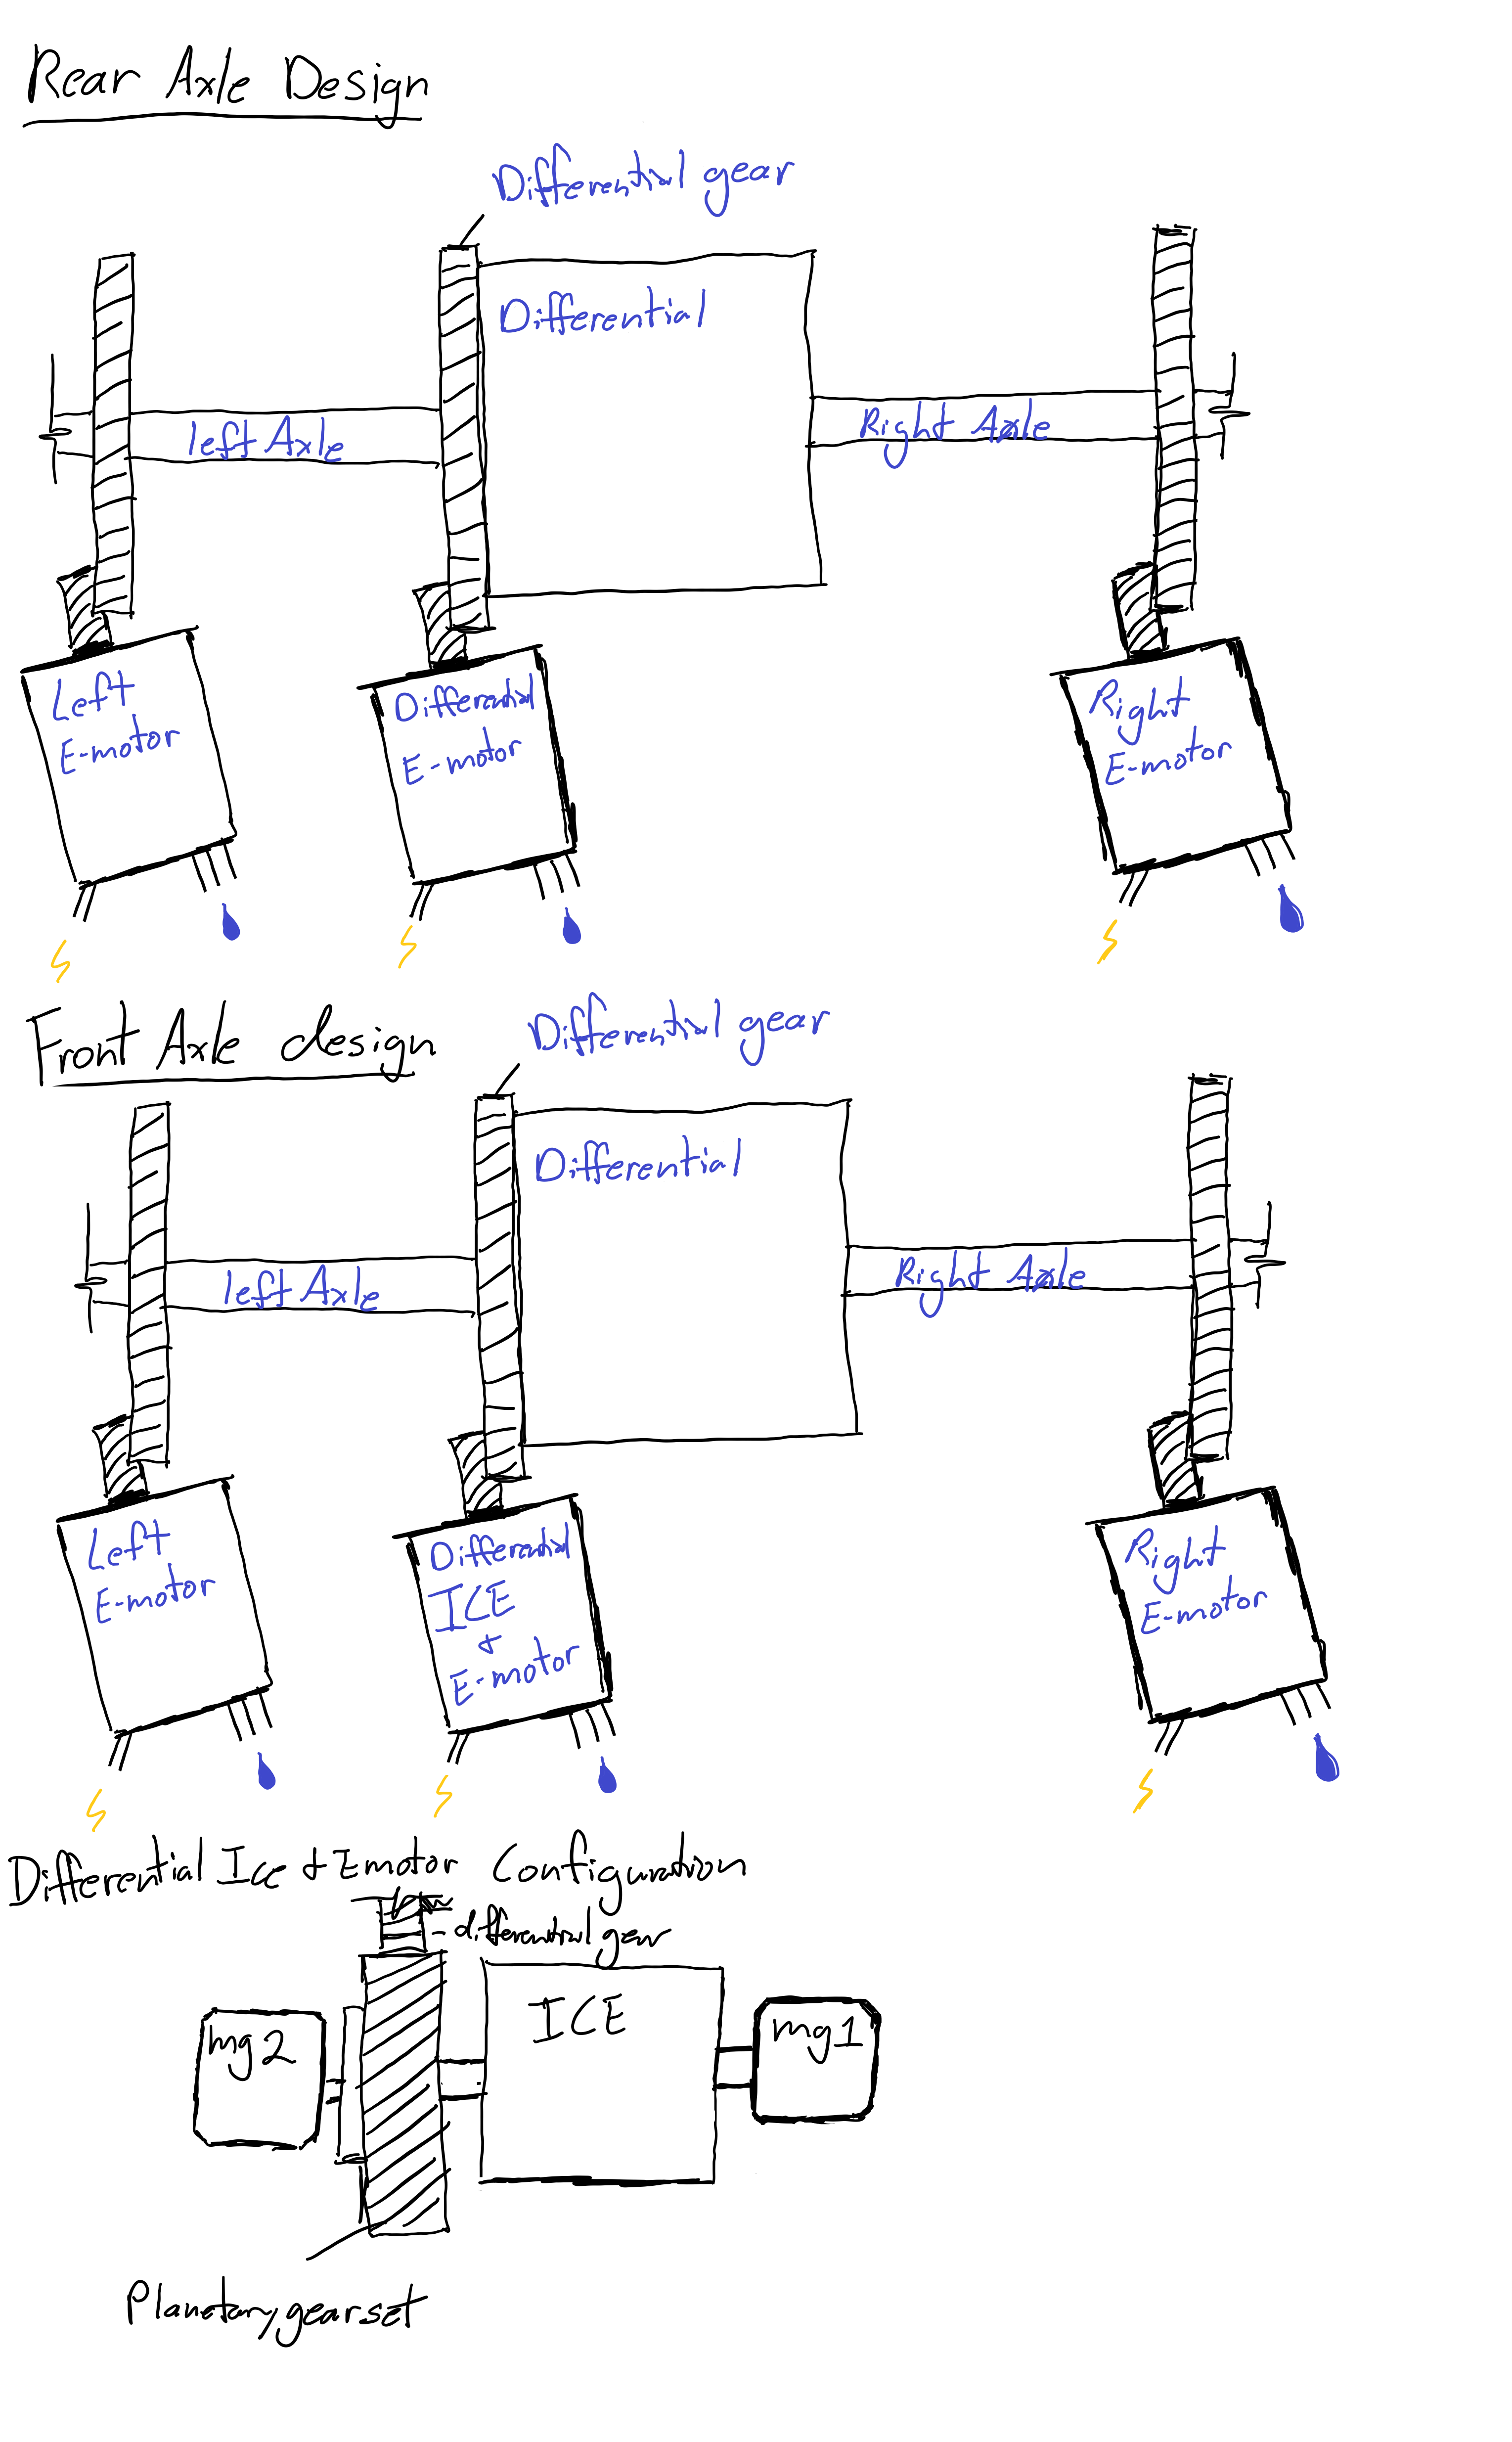 Rear Axle Design
Differential gear
Differential
left Axle
Right Axle
Left
E-motor
Differential
E-motor
Right
E-motor
Front Axle design
Differential gear
Differential
left Axle
Right Axle
Left
E-motor
Differential
ICE
+
E-motor
Right
E-motor
Differential Ice + Emotor Configuration
- differential gear
mg2
ICE
mg1
Planetary gearset